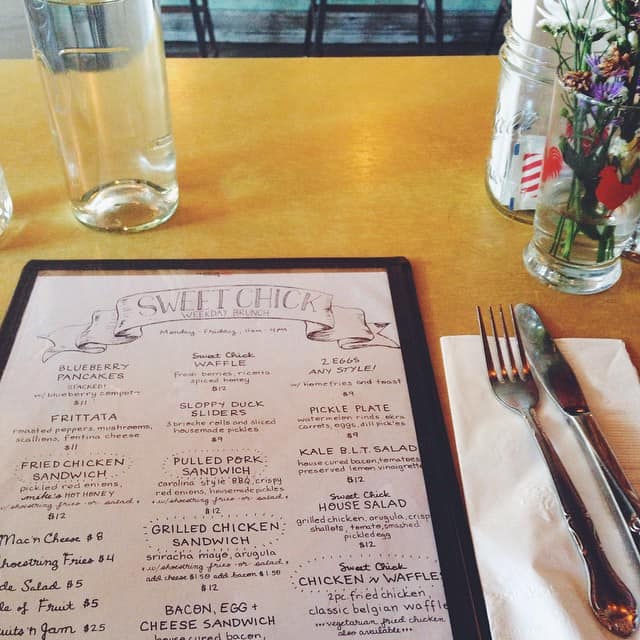 SWEET CHICK
WEEKDAY BRUNCH
Monday-Friday, 11am-4pm
BLUEBERRY
PANCAKES
STACKED!
w/ blueberry compote
$11
FRITTATA
roasted peppers, mushrooms,
scallions, fontina cheese
$11
FRIED CHICKEN
SANDWICH
pickled red onions,
mikes HOT HONEY
w/shoestring fries or salad
$12
Mac'n Cheese $8
Shoestring Fries $4
Salad $5
of Fruit $5
'n Jam $25
Sweet Chick
WAFFLE
fresh berries, ricotta
spiced honey
$12
SLOPPY DUCK
SLIDERS
3 brioche rolls and sliced
housemade pickles
$9
PULLED PORK
SANDWICH
carolina style BBQ, crispy
red onions, housemade pickles
w/shoestring fries or salad
$12
GRILLED CHICKEN
SANDWICH
sriracha mayo, arugula
w/shoestring fries or salad
add cheese $1.50 add bacon $1.50
$12
BACON, EGG +
CHEESE SANDWICH
house cured bacon,
2 EGGS
ANY STYLE!
w/ homefries and toast
$9
PICKLE PLATE
watermelon rinds, okra
carrots, eggs, dill pickles
$9
KALE B.L.T. SALAD
house cured bacon, tomatoes
preserved lemon vinaigrette
$12
Sweet Chick
HOUSE SALAD
grilled chicken, arugula, crisp
shallots, tomato, smashed
pickled egg
$12
Sweet Chick
CHICKEN N WAFFLES
2pc fried chicken,
classic belgian waffle
...vegetarian fried chicken
also available...